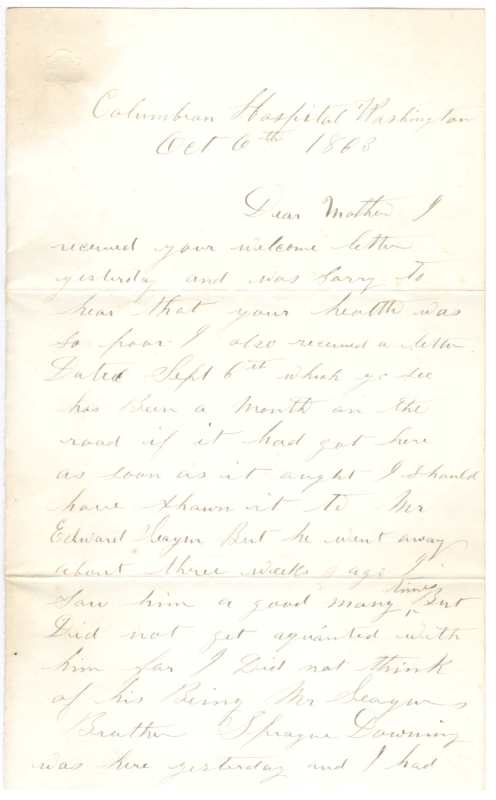 Columbian Hospital Washington
Oct 6th 1863
Dear Mother I
received your welcome letter
yesterday and was sorry to
hear that your health was
so poor I also received a letter
Dated Sept 6th which yo see
has Been a Month on the
road if it had got here
as soon as it aught I should
have shawn it to Mr
Edward Seagur But he went away
about three weeks ago I
Saw him a good many times But
Did not get aquanted with
him for I Did not think
of his Being Mr Seagurs
Brother Sprague Downing
was here yesterday and I had